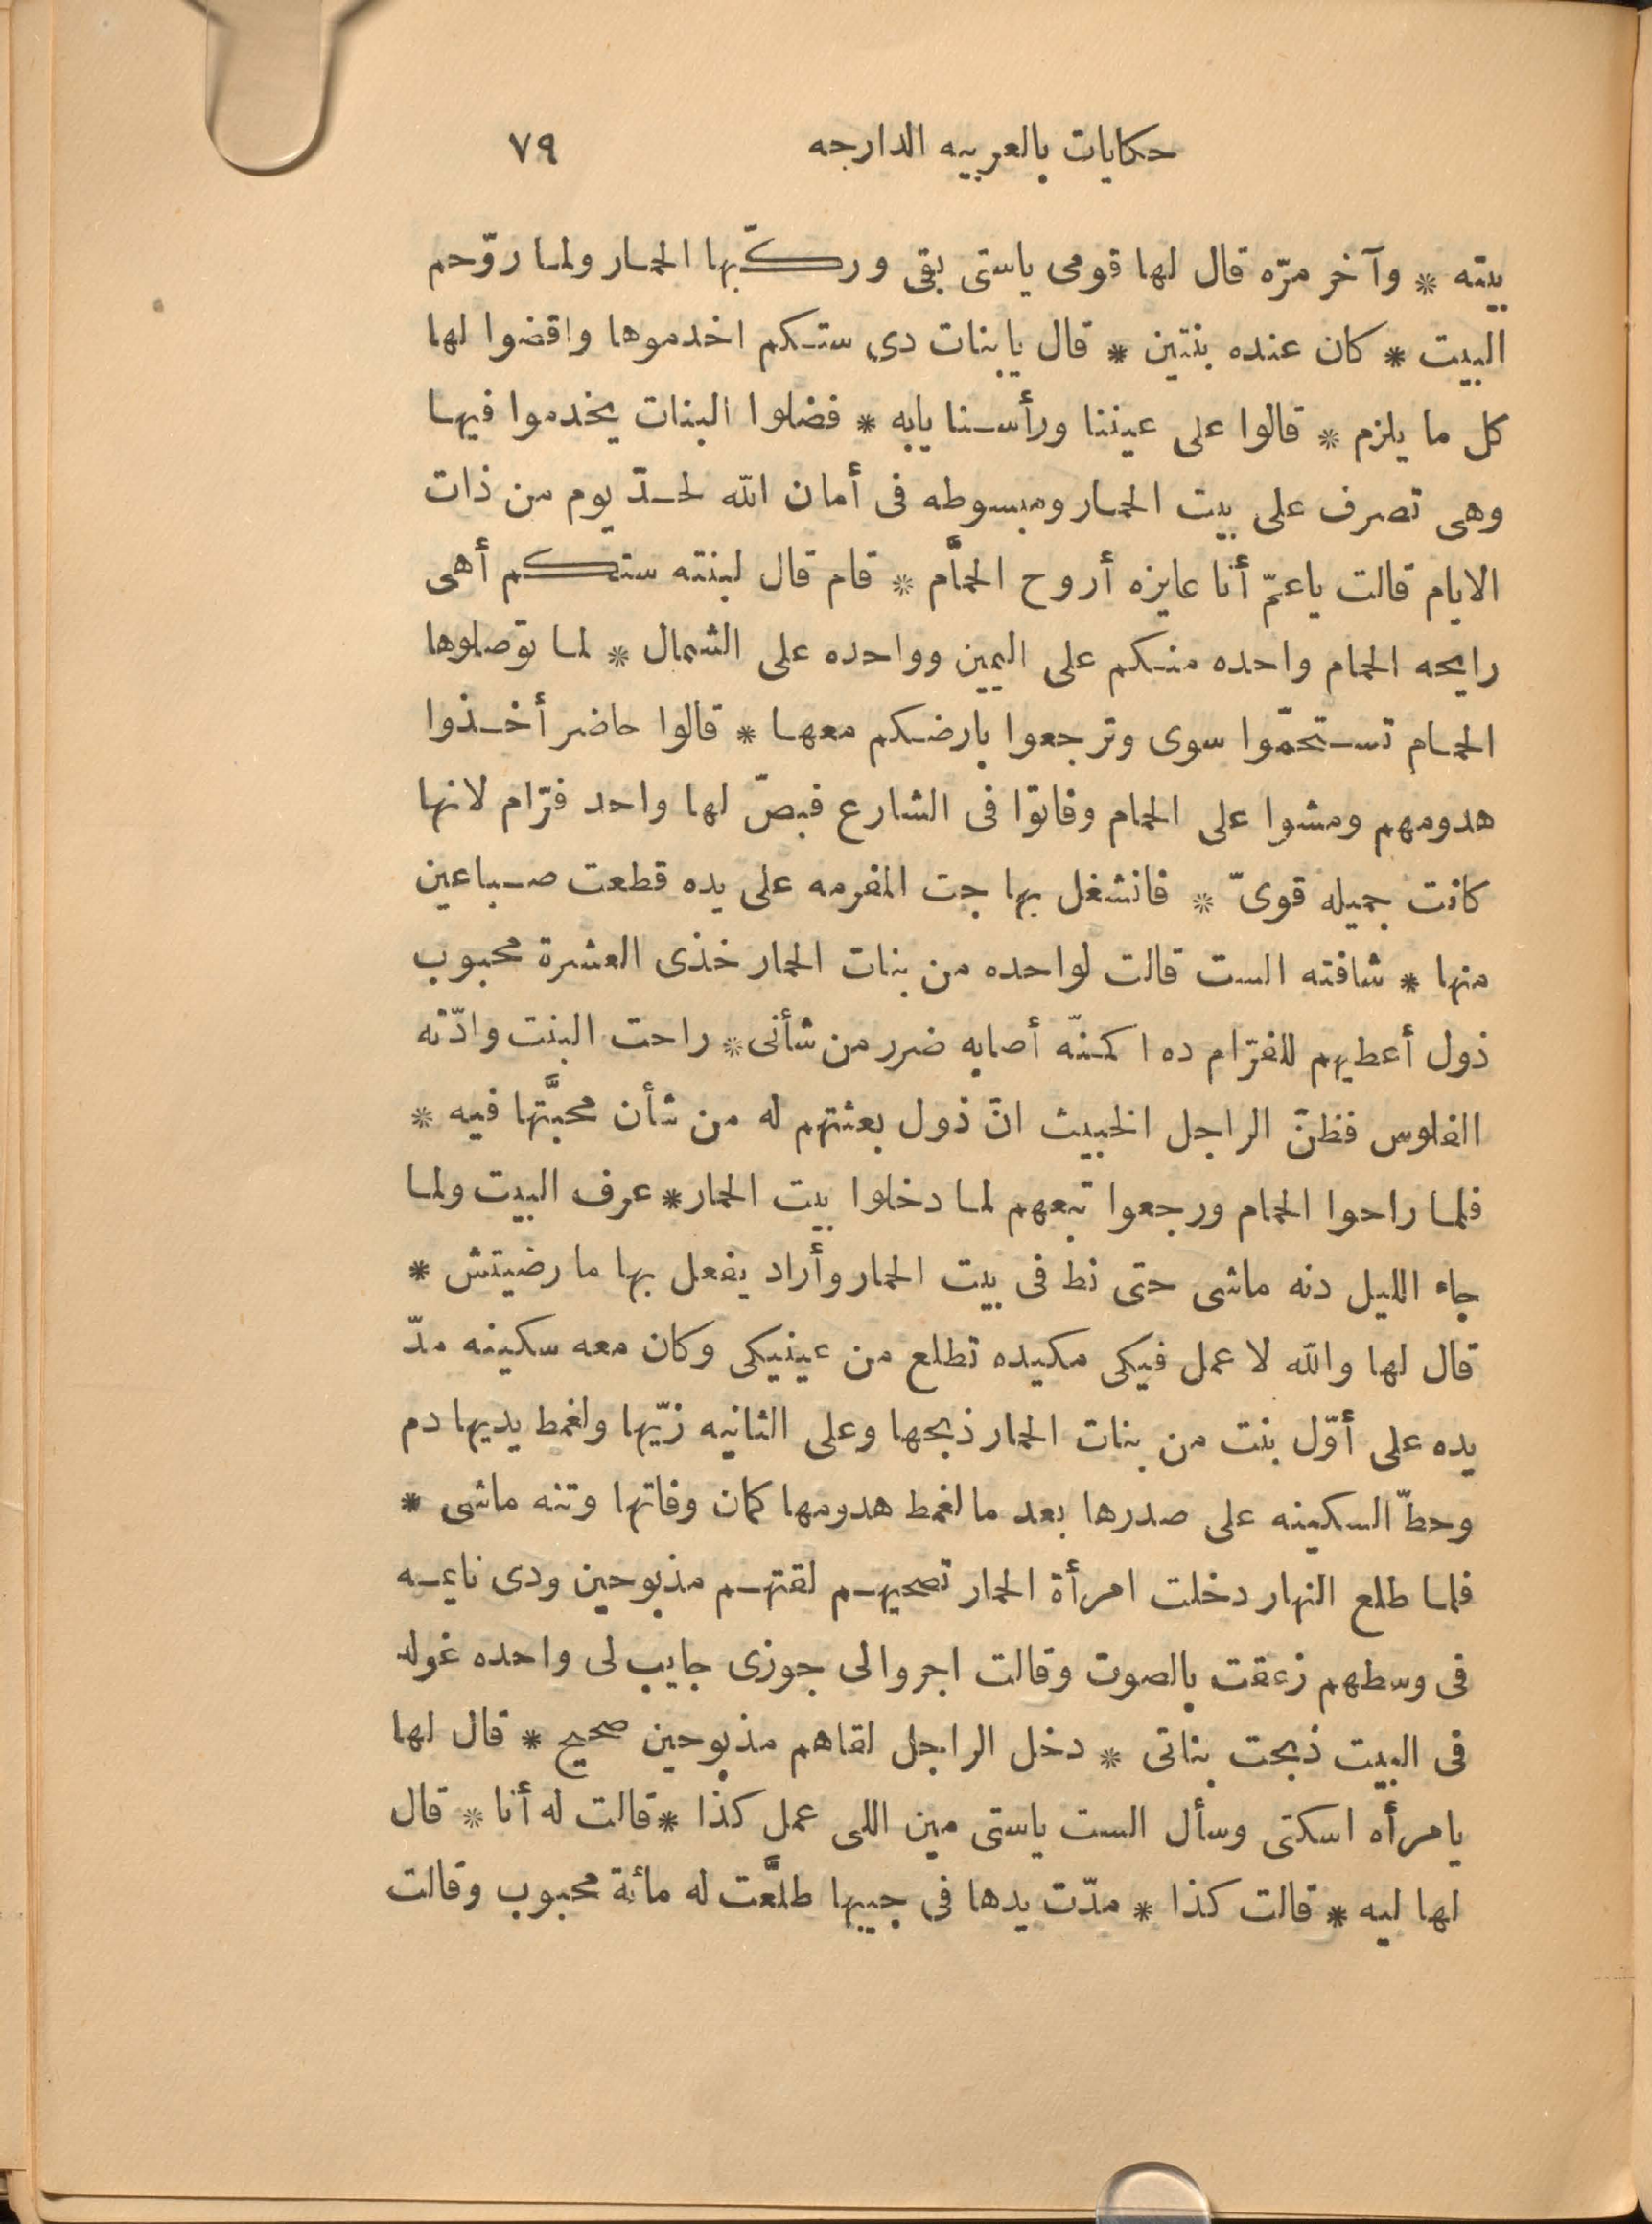 حكايات بالعربيه الدارجه ٧٩
بيته * وآخر مرّه قال لها قومى ياستى بقى وركّبها الحمار ولما روّحم
البيت * كان عنده بنتين * قال يا بنات دى ستكم اخدموها واقضوا لها
كل ما يلزم * قالوا على عيننا ورأسنا يابه * فضلوا البنات يخدموا فيها
وهى تصرف على بيت الحمار ومبسوطه فى أمان الله لحدّ يوم من ذات
الايام قالت ياعمّ أنا عايزه أروح الحمَّام * قام قال لبنته ستكم أهى
رايحه الحمام واحده منكم على اليمين وواحده على الشمال * لما توصلوها
الحمام تستحمّوا سوى وترجعوا بارضكم معها * قالوا حاضر أخذوا
هدومهم ومشوا على الحمام وفاتوا فى الشارع فبصّ لها واحد فرّام لانها
كانت جميله قوىّ * فانشغل بها جت المفرمه على يده قطعت صباعين
منها * شافته الست قالت لواحده من بنات الحمار خذى العشرة محبوب
ذول أعطيهم للفرّام ده اكمنّه أصابه ضرر من شأنى * راحت البنت وادّته
الفلوس فظنّ الراجل الخبيث انّ ذول بعثتهم له من شأن محبَّتها فيه *
فلما راحوا الحمام ورجعوا تبعهم لما دخلوا بيت الحمار * عرف البيت ولما
جاء الليل دنه ماشى حتى نط فى بيت الحمار وأراد يفعل بها ما رضيتش *
قال لها والله لا عمل فيكى مكيده تطلع من عينيكى وكان معه سكينه مدّ
يده على أوّل بنت من بنات الحمار ذبحها وعلى الثانيه زيّها ولغمط يديها دم
وحطّ السكينه على صدرها بعد ما لغمط هدومها كمان وفاتها وتنه ماشى *
فلما طلع النهار دخلت امرأة الحمار تصحيهم لقتهم مذبوحين ودى نايمه
فى وسطهم زعقت بالصوت وقالت اجروا لى جوزى جايب لى واحده غوله
فى البيت ذبحت بناتى * دخل الراجل لقاهم مذبوحين صحيح * قال لها
يا مرأه اسكتى وسأل الست ياستى مين اللى عمل كذا * قالت له أنا * قال
لها ليه * قالت كذا * مدّت يدها فى جيبها طلَّعت له مائة محبوب وقالت